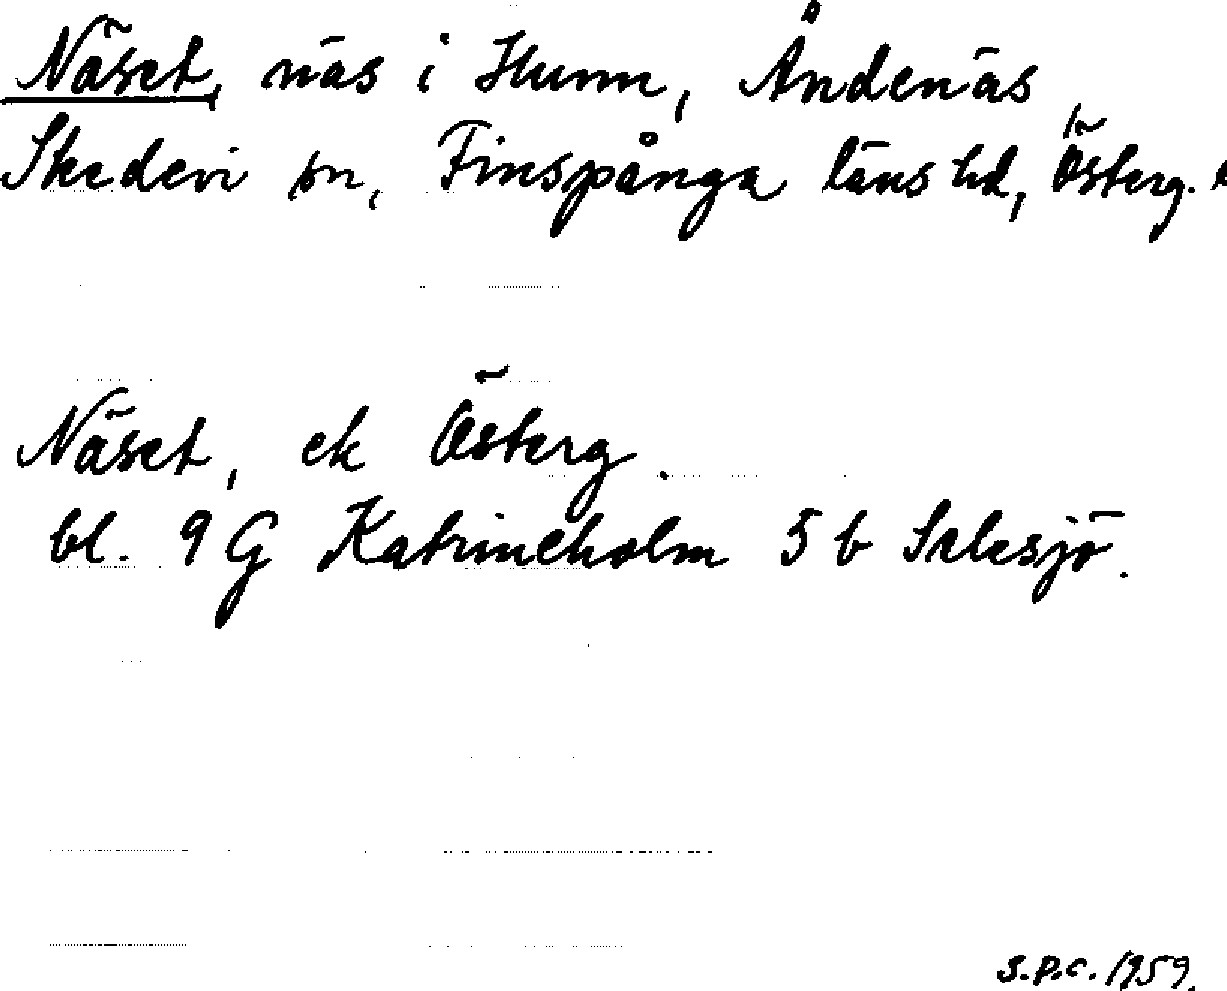 Näset, näs i Hunn, Åndenäs,
Skedevi sn, Finspånga läns hd, Österg.
Näset, ek Österg.
bl. 9 G Katrineholm 5 b Ialasjö.
S.P.C. 1959.